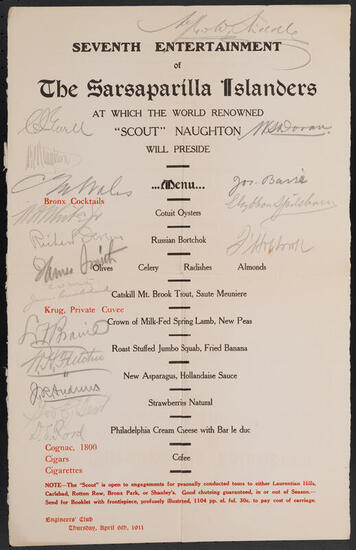 SEVENTH ENTERTAINMENT
of
The Sarsaparilla Islanders
AT WHICH THE WORLD RENOWNED
"SCOUT" NAUGHTON
WILL PRESIDE
...Menu...
Jos. Barrie
Bronx Cocktails
Cotuit Oysters
Russian Bortchok
James Smith
Olives Celery Radishes Almonds
Catskill Mt. Brook Trout, Saute Meuniere
Krug, Private Cuvee
Crown of Milk-Fed Spring Lamb, New Peas
Roast Stuffed Jumbo Squab, Fried Banana
New Asparagus, Hollandaise Sauce
Strawberris Natural
Philadelphia Cream Cheese with Bar le duc
Cognac, 1800
Cigars
Cigarettes
Cofee
NOTE—The "Scout" is open to engagements for pesonally conducted tours to either Laurentian Hills,
Carlsbad, Rotten Row, Bronx Park, or Shanley's. Good chuteing guaranteed, in or out of Season.—
Send for Booklet with frontispiece, profusely illustrted, 1104 pp. el. ful. 30c. to pay cost of carriage.
Engineers' Club
Thursday, April 6th, 1911